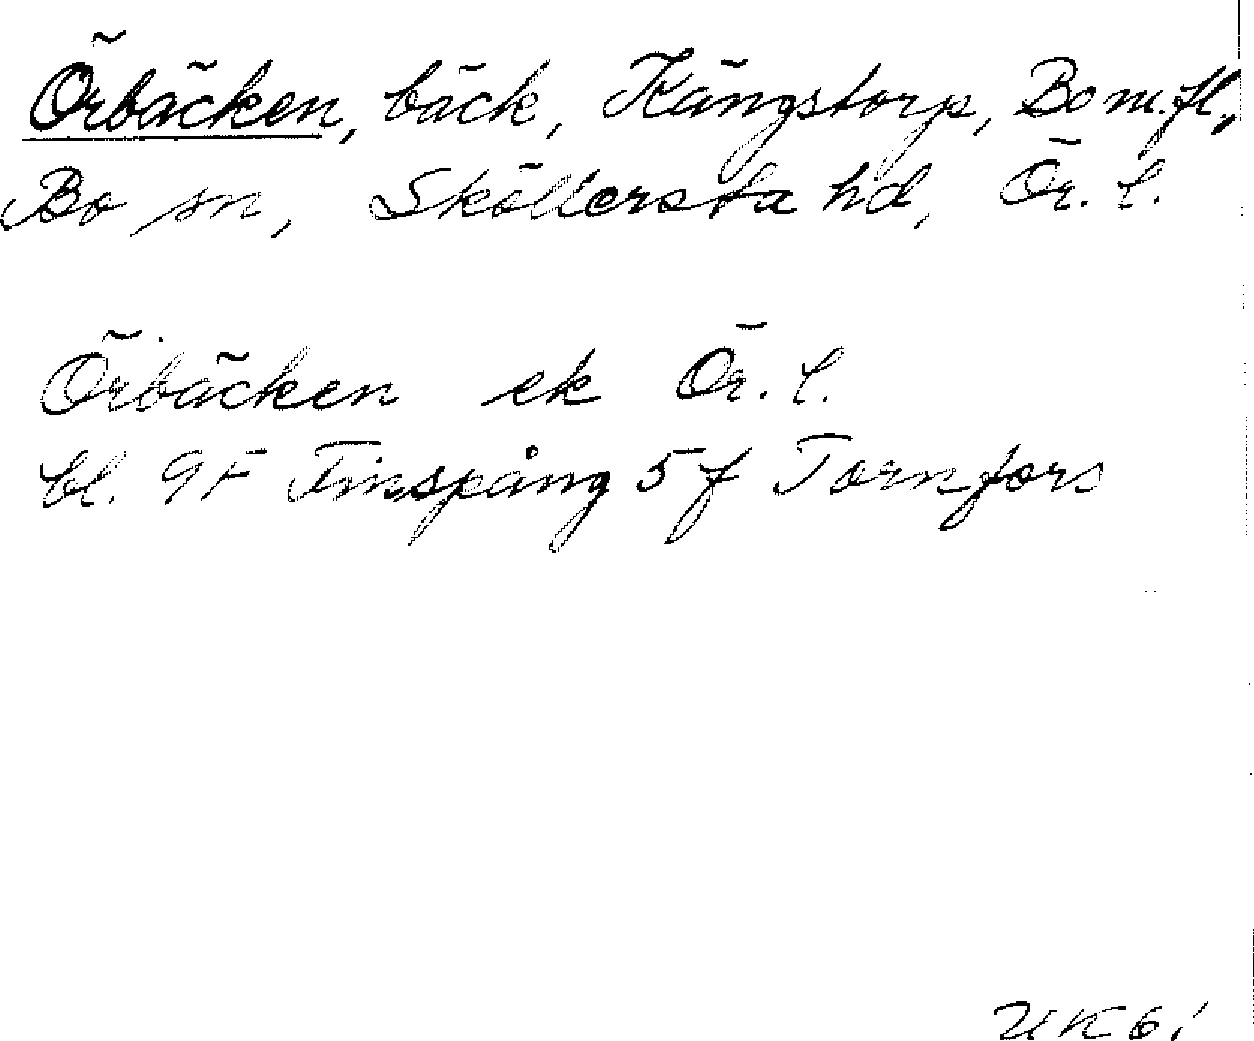 Örbäcken, bäck, Kängstorp, Bo m.fl.,
Bo sn, Sköllersta hd, Ör. l.
Örbäcken ek Ör. l.
bl. 9F Finspång 5 f Tornfors
UK 61